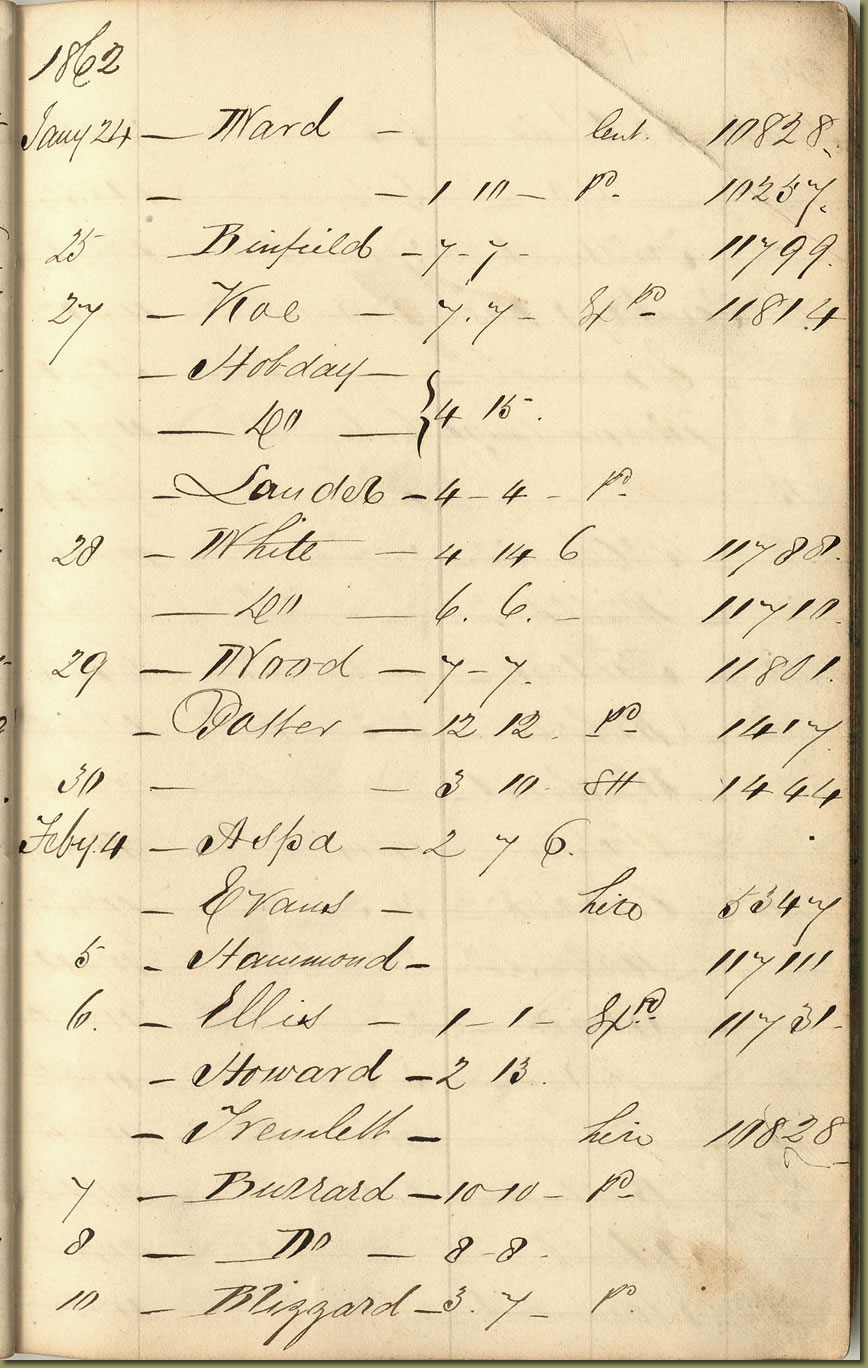 1862
Jany 24 — Ward — lent. 10828.
— — 1 10 — pd. 10257.
25 Binfield — 7 - 7 - 11799.
27 — Koe — 7. 7 - pd 11814
— Hobday —
— Do — } 4 15.
— Lauder — 4 - 4 - pd.
28 — White — 4 14 6 11788.
— Do — 6. 6. - 11710.
29 — Wood — 7 - 7. 11801.
— Potter — 12 12. pd 1417.
30 — — 3 10. 1444
Feby. 4 — Aspa — 2 7 6.
— Evans — hire 5347
5 — Hammond — 11711
6. — Ellis — 1 - 1 - pd 11731.
— Howard — 2 13.
— Tremlett — hire 10828
7 — Burrard — 10 - 10 - pd.
8 — Do — 8 - 8.
10 — Blizzard — 3. 7 - P.